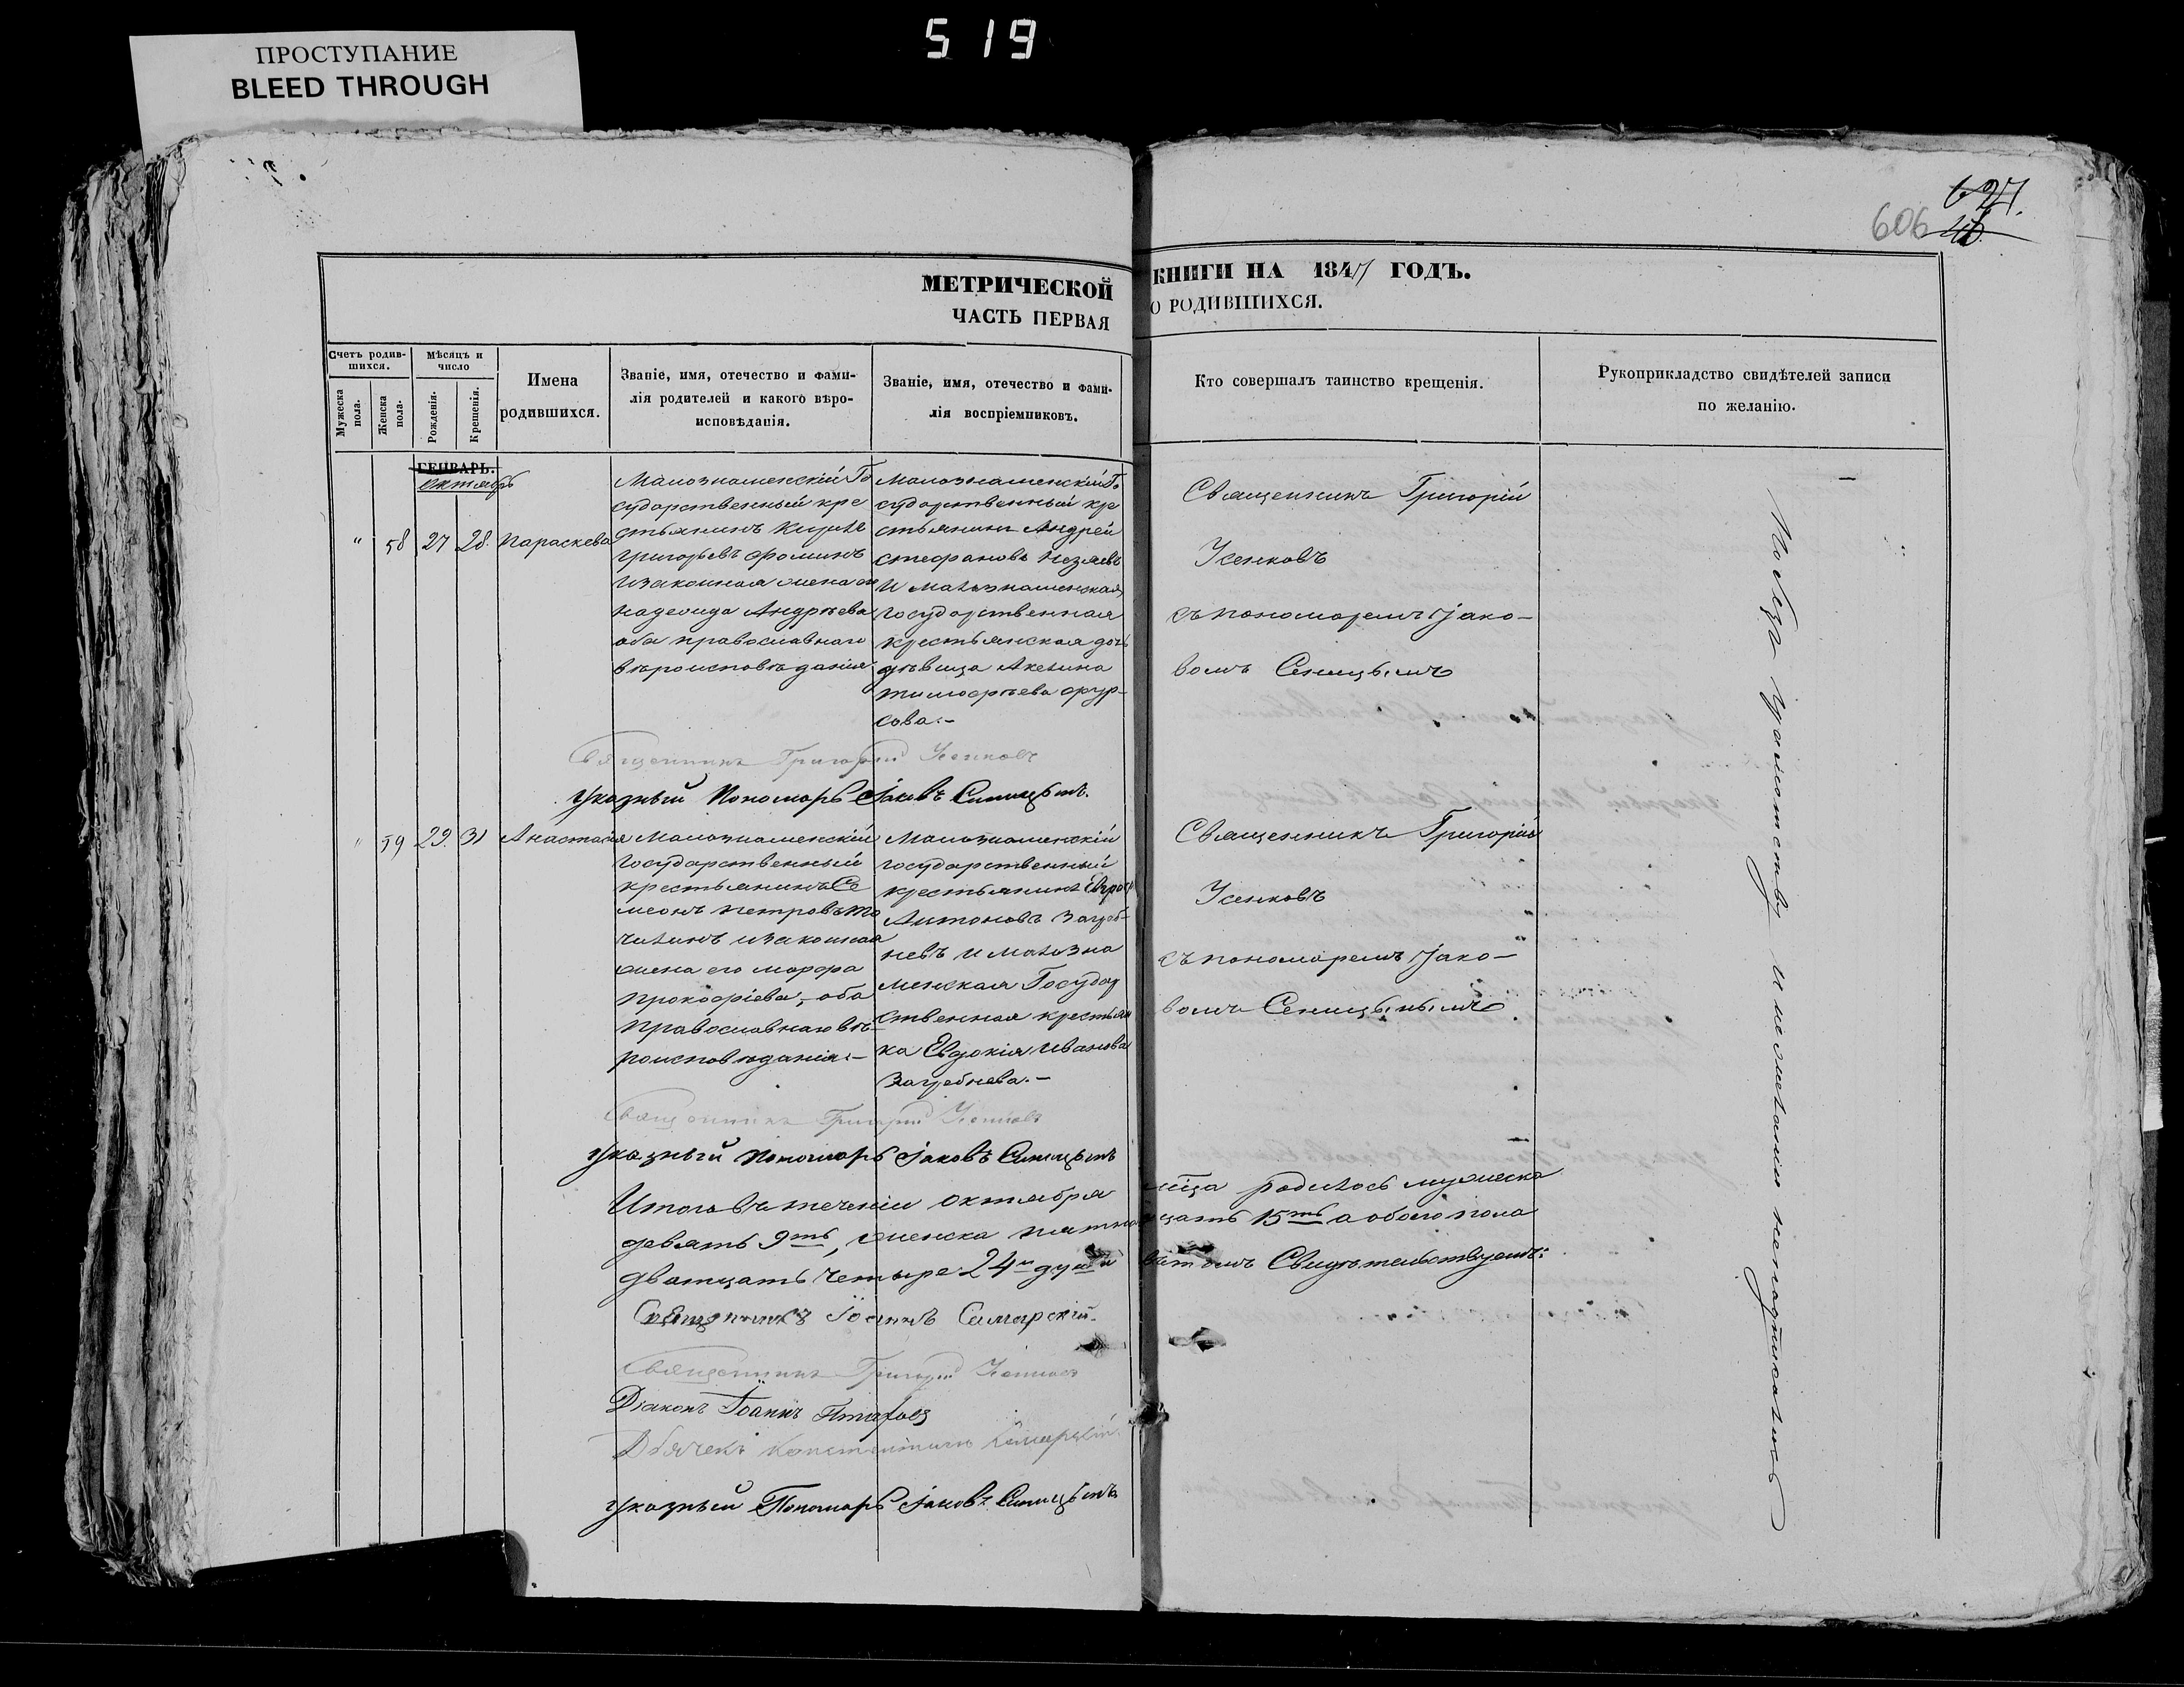 519
ПРОСТУПАНИЕ
BLEED THROUGH
627.
606
МЕТРИЧЕСКОЙ КНИГИ НА 1847 ГОДЪ.
ЧАСТЬ ПЕРВАЯ О РОДИВШИХСЯ.
Счетъ родив-
шихся.
Мужеска пола.
Женска пола.
Мѣсяцъ и число
Рожденія.
Крещенія.
Имена
родившихся.
Званіе, имя, отечество и фами-
лія родителей и какого вѣро-
исповѣданія.
Званіе, имя, отечество и фами-
лія воспріемниковъ.
Кто совершалъ таинство крещенія.
Рукоприкладство свидѣтелей записи
по желанію.
ГЕНВАРЬ.
октябрь
" 58 27 28. Параскева
Малознаменскій Го
сударственный кре
стьянинъ
Григорьевъ Фоминъ
и законная жена его
Надежда Андрѣева
оба православнаго
вѣроисповѣданія
Малознаменскій Го
сударственный кре
стьянинъ Андрей
Стефановъ
и Малознаменская
государственная
крестьянская дочь
дѣвица Акелина
Тимофѣева Фур-
сова.-
Священникъ Григорій
Усенковъ
съ пономаремъ Іако-
вомъ Сеницынымъ
Священникъ Григорій Усенковъ
Указный Пономарь Іаковъ Синицынъ.
" 59 29. 31 Анастасія
Малознаменскій
Государственный
крестьянинъ Се
меонъ Петровъ То
чилинъ и законная
жена его Марфа
Прокофіева, оба
Православнаго вѣ-
роисповѣданія.-
Малознаменскій
государственный
крестьянинъ
Антоновъ Загреб-
невъ и Малозна
менская Государ
ственная крестьян
ка Евдокія Иванова
Загребнева.-
Священникъ Григорій
Усенковъ
съ пономаремъ Іако-
вомъ Сеницынымъ
Священникъ Григорій Усенковъ
Указный Пономарь Іаковъ Синицынъ
Итого въ теченіи октября мѣца родилось мужеска
девять 9ть, женска пятнадцать 15ть а обоего пола
дватцать четыре 24и души въ томъ Свидѣтельствуемъ:
Священникъ Іоаннъ Самарскій.
Священникъ Григорій Усенковъ
Діаконъ Іоаннъ
Дьячекъ Константинъ Самарскій.
Указный Пономарь Іаковъ Синицынъ
По безграмотству и нежеланію неподписались